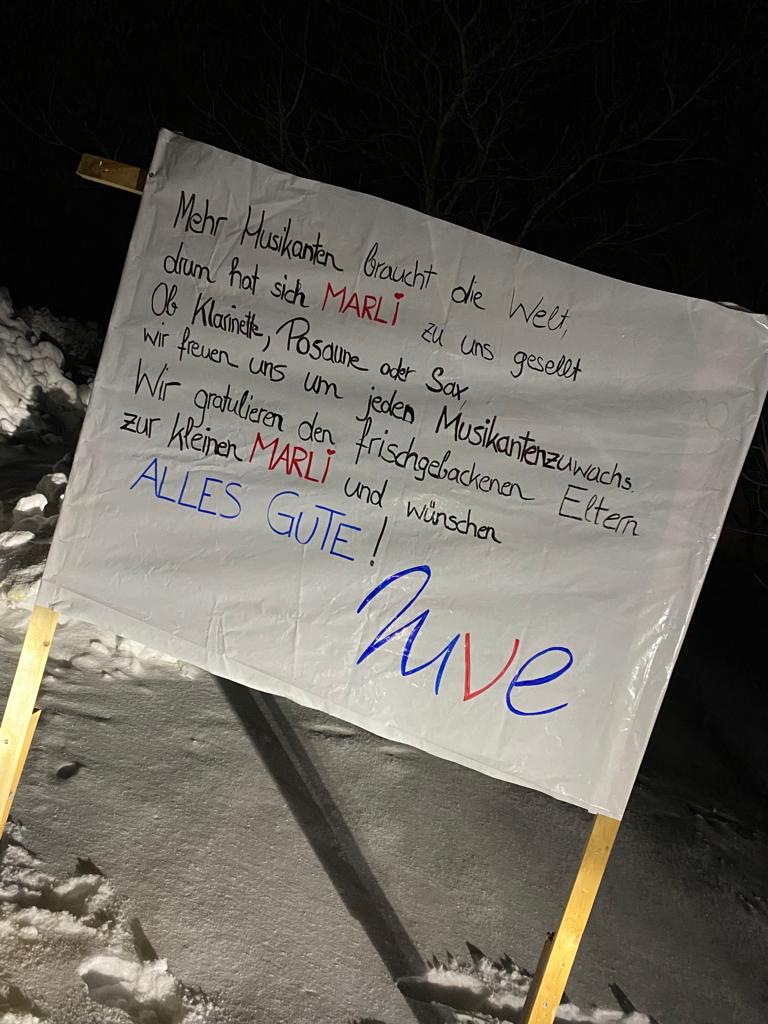 Mehr Musikanten braucht die Welt,
drum hat sich MARLi zu uns gesellt
Ob Klarinette, Posaune oder Sax,
wir freuen uns um jeden Musikantenzuwachs.
Wir gratulieren den frischgebackenen Eltern
zur kleinen MARLi und wünschen
ALLES GUTE!